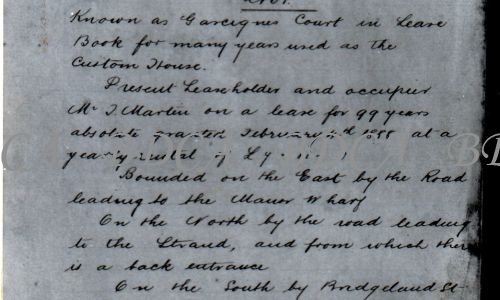 Known as Garceignes Court in Lease
Book for many years used as the
Custom House.
Present Leaseholder and occupier
Mr J Martin on a lease for 99 years
absolute granted February at a
yearly rental of
Bounded on the East by the Road
leading to the Manor Wharf
On the North by the road leading
to the Strand, and from which ther
is a back entrance
On the South by Bridgeland St-